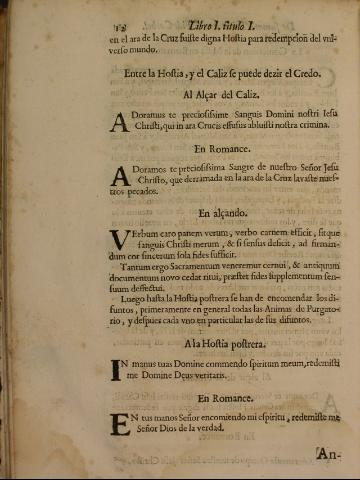 12 Libro I. titulo I.
en el ara de la Cruz fuiste digna Hostia para redempcion del vni-
verso mundo.
Entre la Hostia, y el Caliz se puede dezir el Credo.
Al Alçar del Caliz.
ADoramus te preciosissime Sanguis Domini nostri Iesu
Christi, qui in ara Crucis effusus abluisti nostra crimina.
En Romance.
ADoramos te preciosissima Sangre de nuestro Señor Jesu
Christo, que derramada en la ara de la Cruz lavaste nues-
tros pecados.
En alçando.
VErbum caro panem verum, verbo carnem efficit, fitque
sanguis Christi merum, & si sensus deficit, ad firman-
dum cor sincerum sola fides sufficit.
Tantum ergo Sacramentum veneremur cernui, & antiquum
documentum novo cedat ritui, præstet fides supplementum sen-
suum deffectui.
Luego hasta la Hostia postrera se han de encomendar los di-
funtos, primeramente en general todas las Animas de Purgato-
rio, y despues cada vno en particular las de sus difuntos.
A la Hostia postrera.
IN manus tuas Domine commendo spiritum meum, redemisti
me Domine Deus veritatis.
En Romance.
EN tus manos Señor encomiendo mi espiritu, redemiste me
Señor Dios de la verdad.
An-